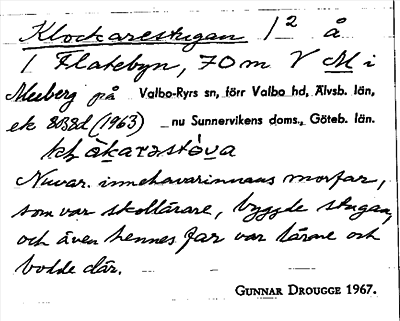 Klockarestugan 1² å
1 Flatebyn, 70 m V M i
Muberg på Valbo-Ryrs sn, förr Valbo hd, Älvsb. län,
ek 8B8d (1963) nu Sunnervikens doms., Göteb. län.
Nuvar. innehavarinnans morfar,
som var skollärare, byggde stugan,
och även hennes far var lärare och
bodde där.
GUNNAR DROUGGE 1967.